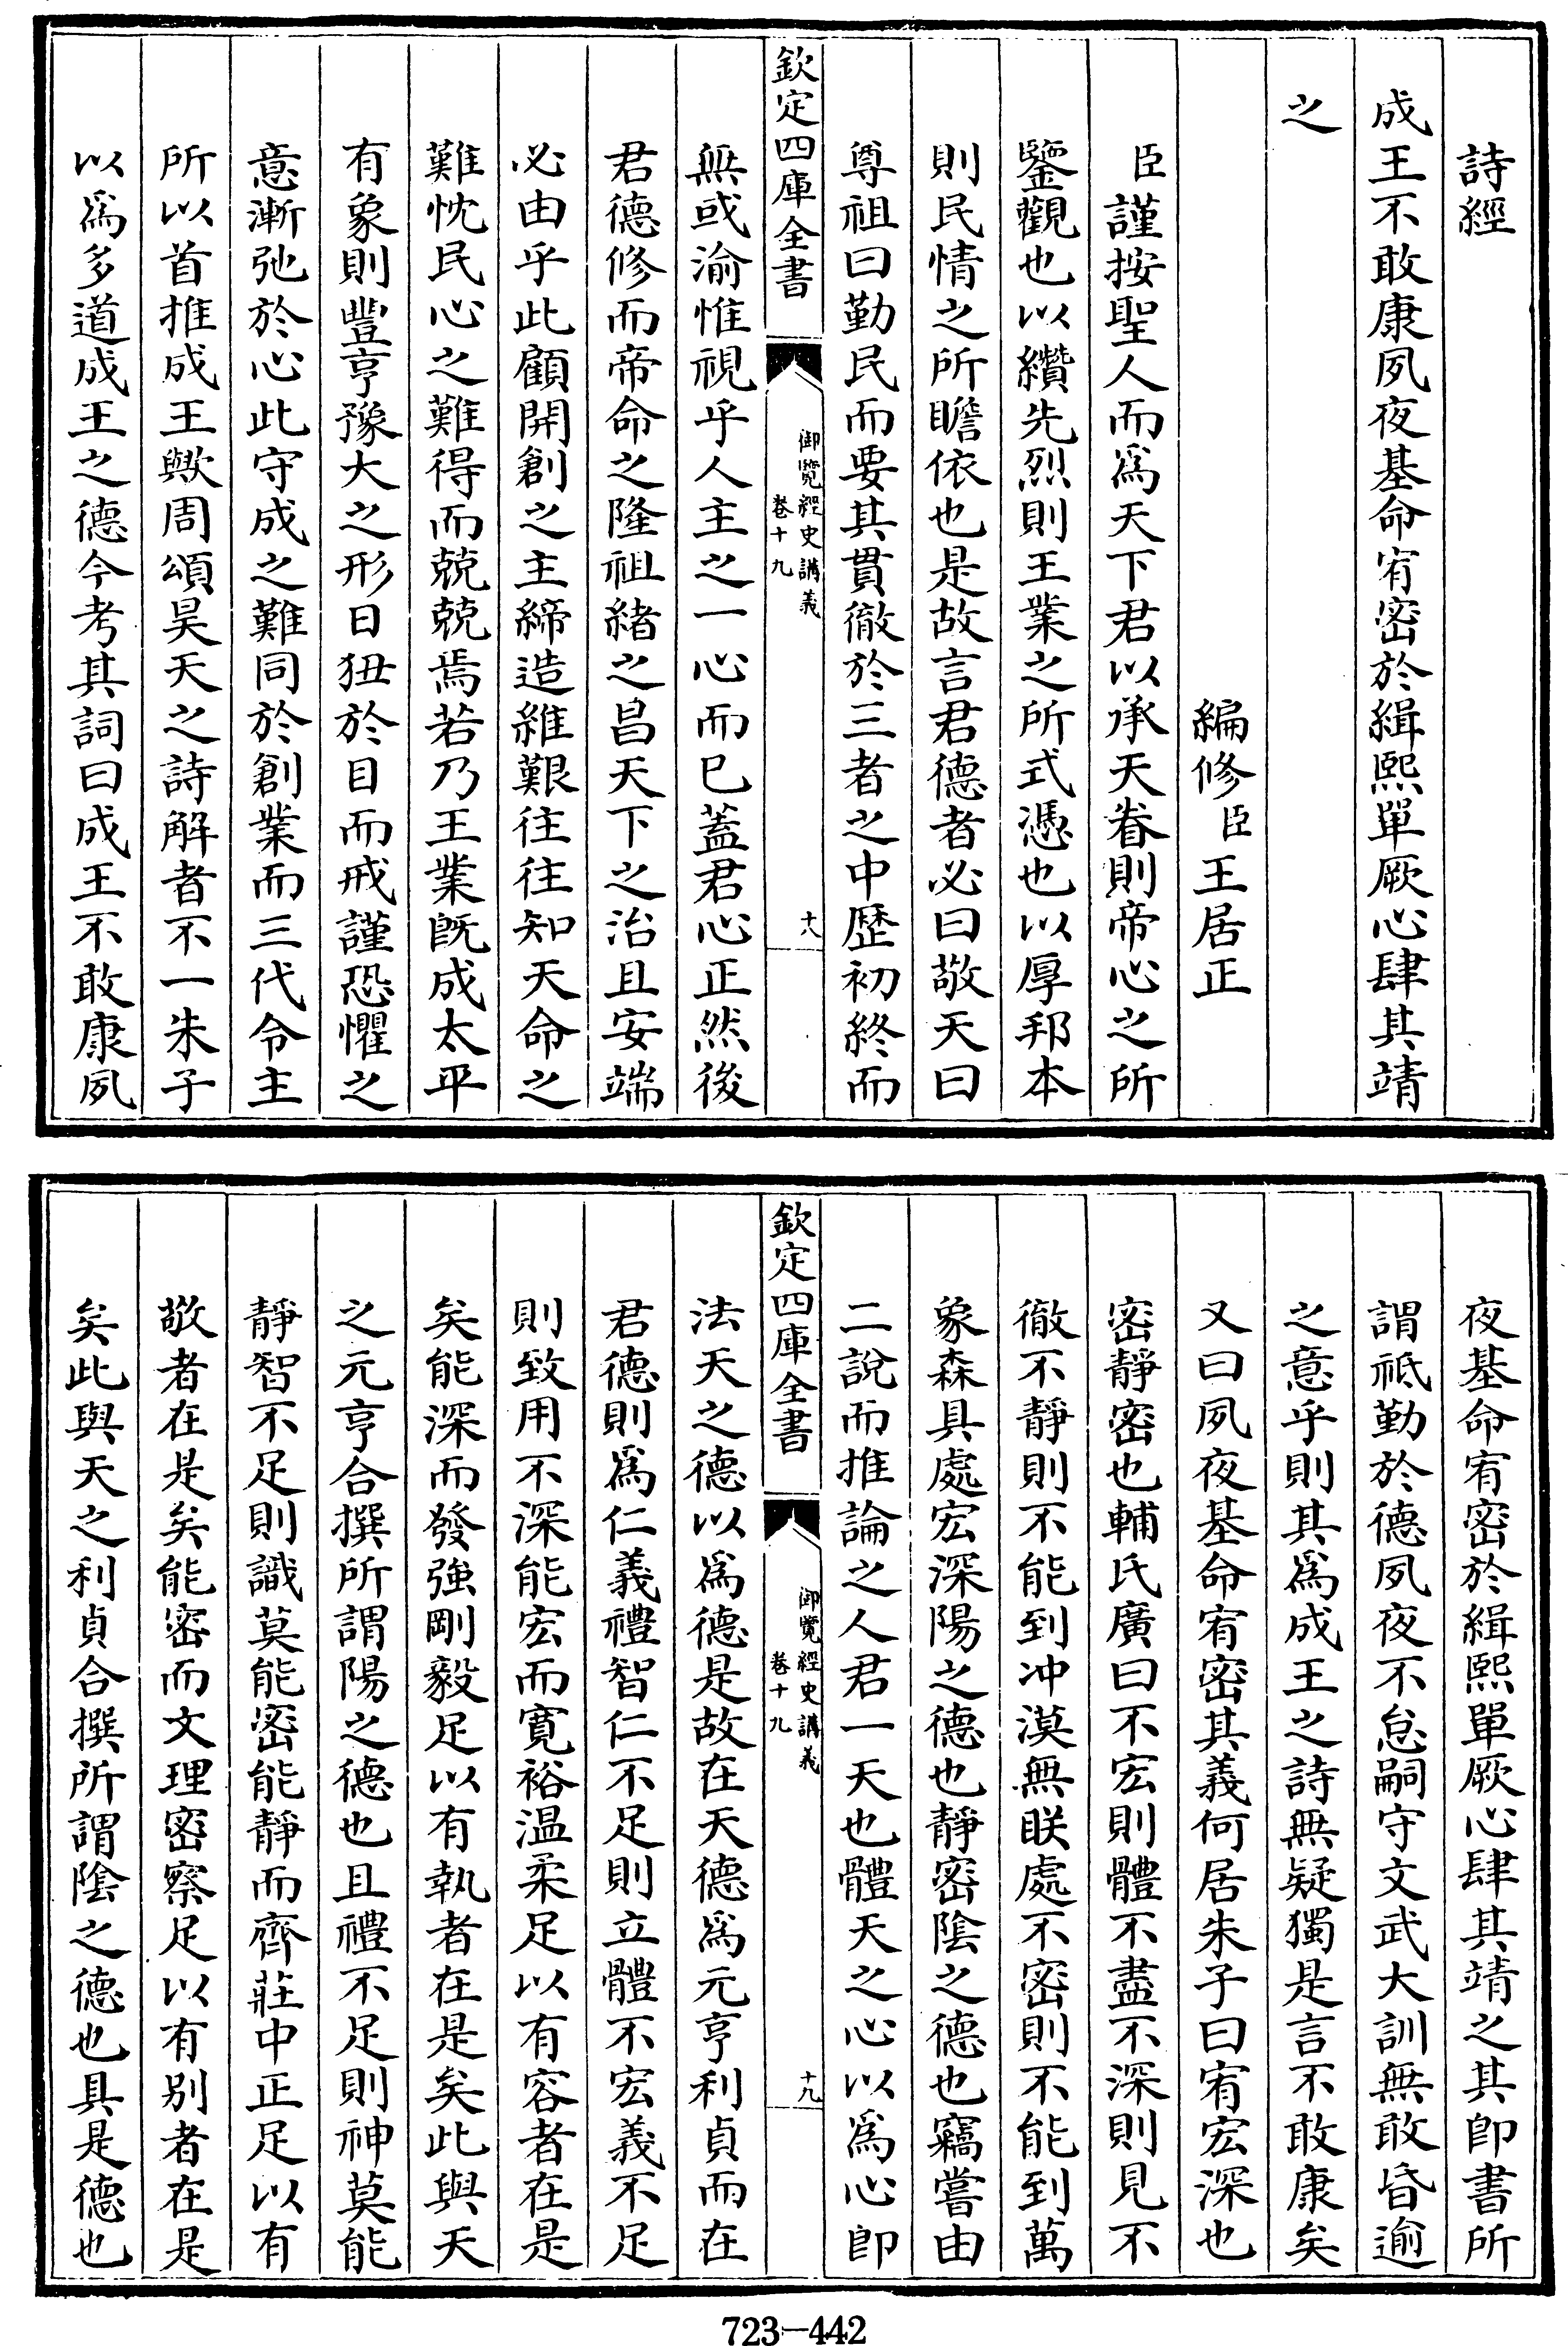 詩經
成王不敢康夙夜基命宥密於緝熙單厥心肆其靖
之
編修臣王居正
臣謹按聖人而爲天下君以承天眷則帝心之所
鑒觀也以纘先烈則王業之所式憑也以厚邦本
則民情之所瞻依也是故言君德者必曰敬天曰
尊祖曰勤民而要其貫徹於三者之中歷初終而
欽定四庫全書
御覽經史講義
卷十九
十八
無或渝惟視乎人主之一心而已蓋君心正然後
君德修而帝命之隆祖緒之昌天下之治且安端
必由乎此顧開創之主締造維艱往往知天命之
難忱民心之難得而兢兢焉若乃王業旣成太平
有象則豐亨豫大之形日狃於目而戒謹恐懼之
意漸弛於心此守成之難同於創業而三代令主
所以首推成王歟周頌昊天之詩解者不一朱子
以爲多道成王之德今考其詞曰成王不敢康夙
夜基命宥密於緝熙單厥心肆其靖之其卽書所
謂祗勤於德夙夜不怠嗣守文武大訓無敢昏逾
之意乎則其爲成王之詩無疑獨是言不敢康矣
又曰夙夜基命宥密其義何居朱子曰宥宏深也
密靜密也輔氏廣曰不宏則體不盡不深則見不
徹不靜則不能到冲漠無眹處不密則不能到萬
象森具處宏深陽之德也靜密陰之德也竊嘗由
二說而推論之人君一天也體天之心以爲心卽
欽定四庫全書
御覽經史講義
卷十九
十九
法天之德以爲德是故在天德爲元亨利貞而在
君德則爲仁義禮智仁不足則立體不宏義不足
則致用不深能宏而寬裕温柔足以有容者在是
矣能深而發強剛毅足以有執者在是矣此與天
之元亨合撰所謂陽之德也且禮不足則神莫能
靜智不足則識莫能密能靜而齊莊中正足以有
敬者在是矣能密而文理密察足以有别者在是
矣此與天之利貞合撰所謂陰之德也具是德也
723-442